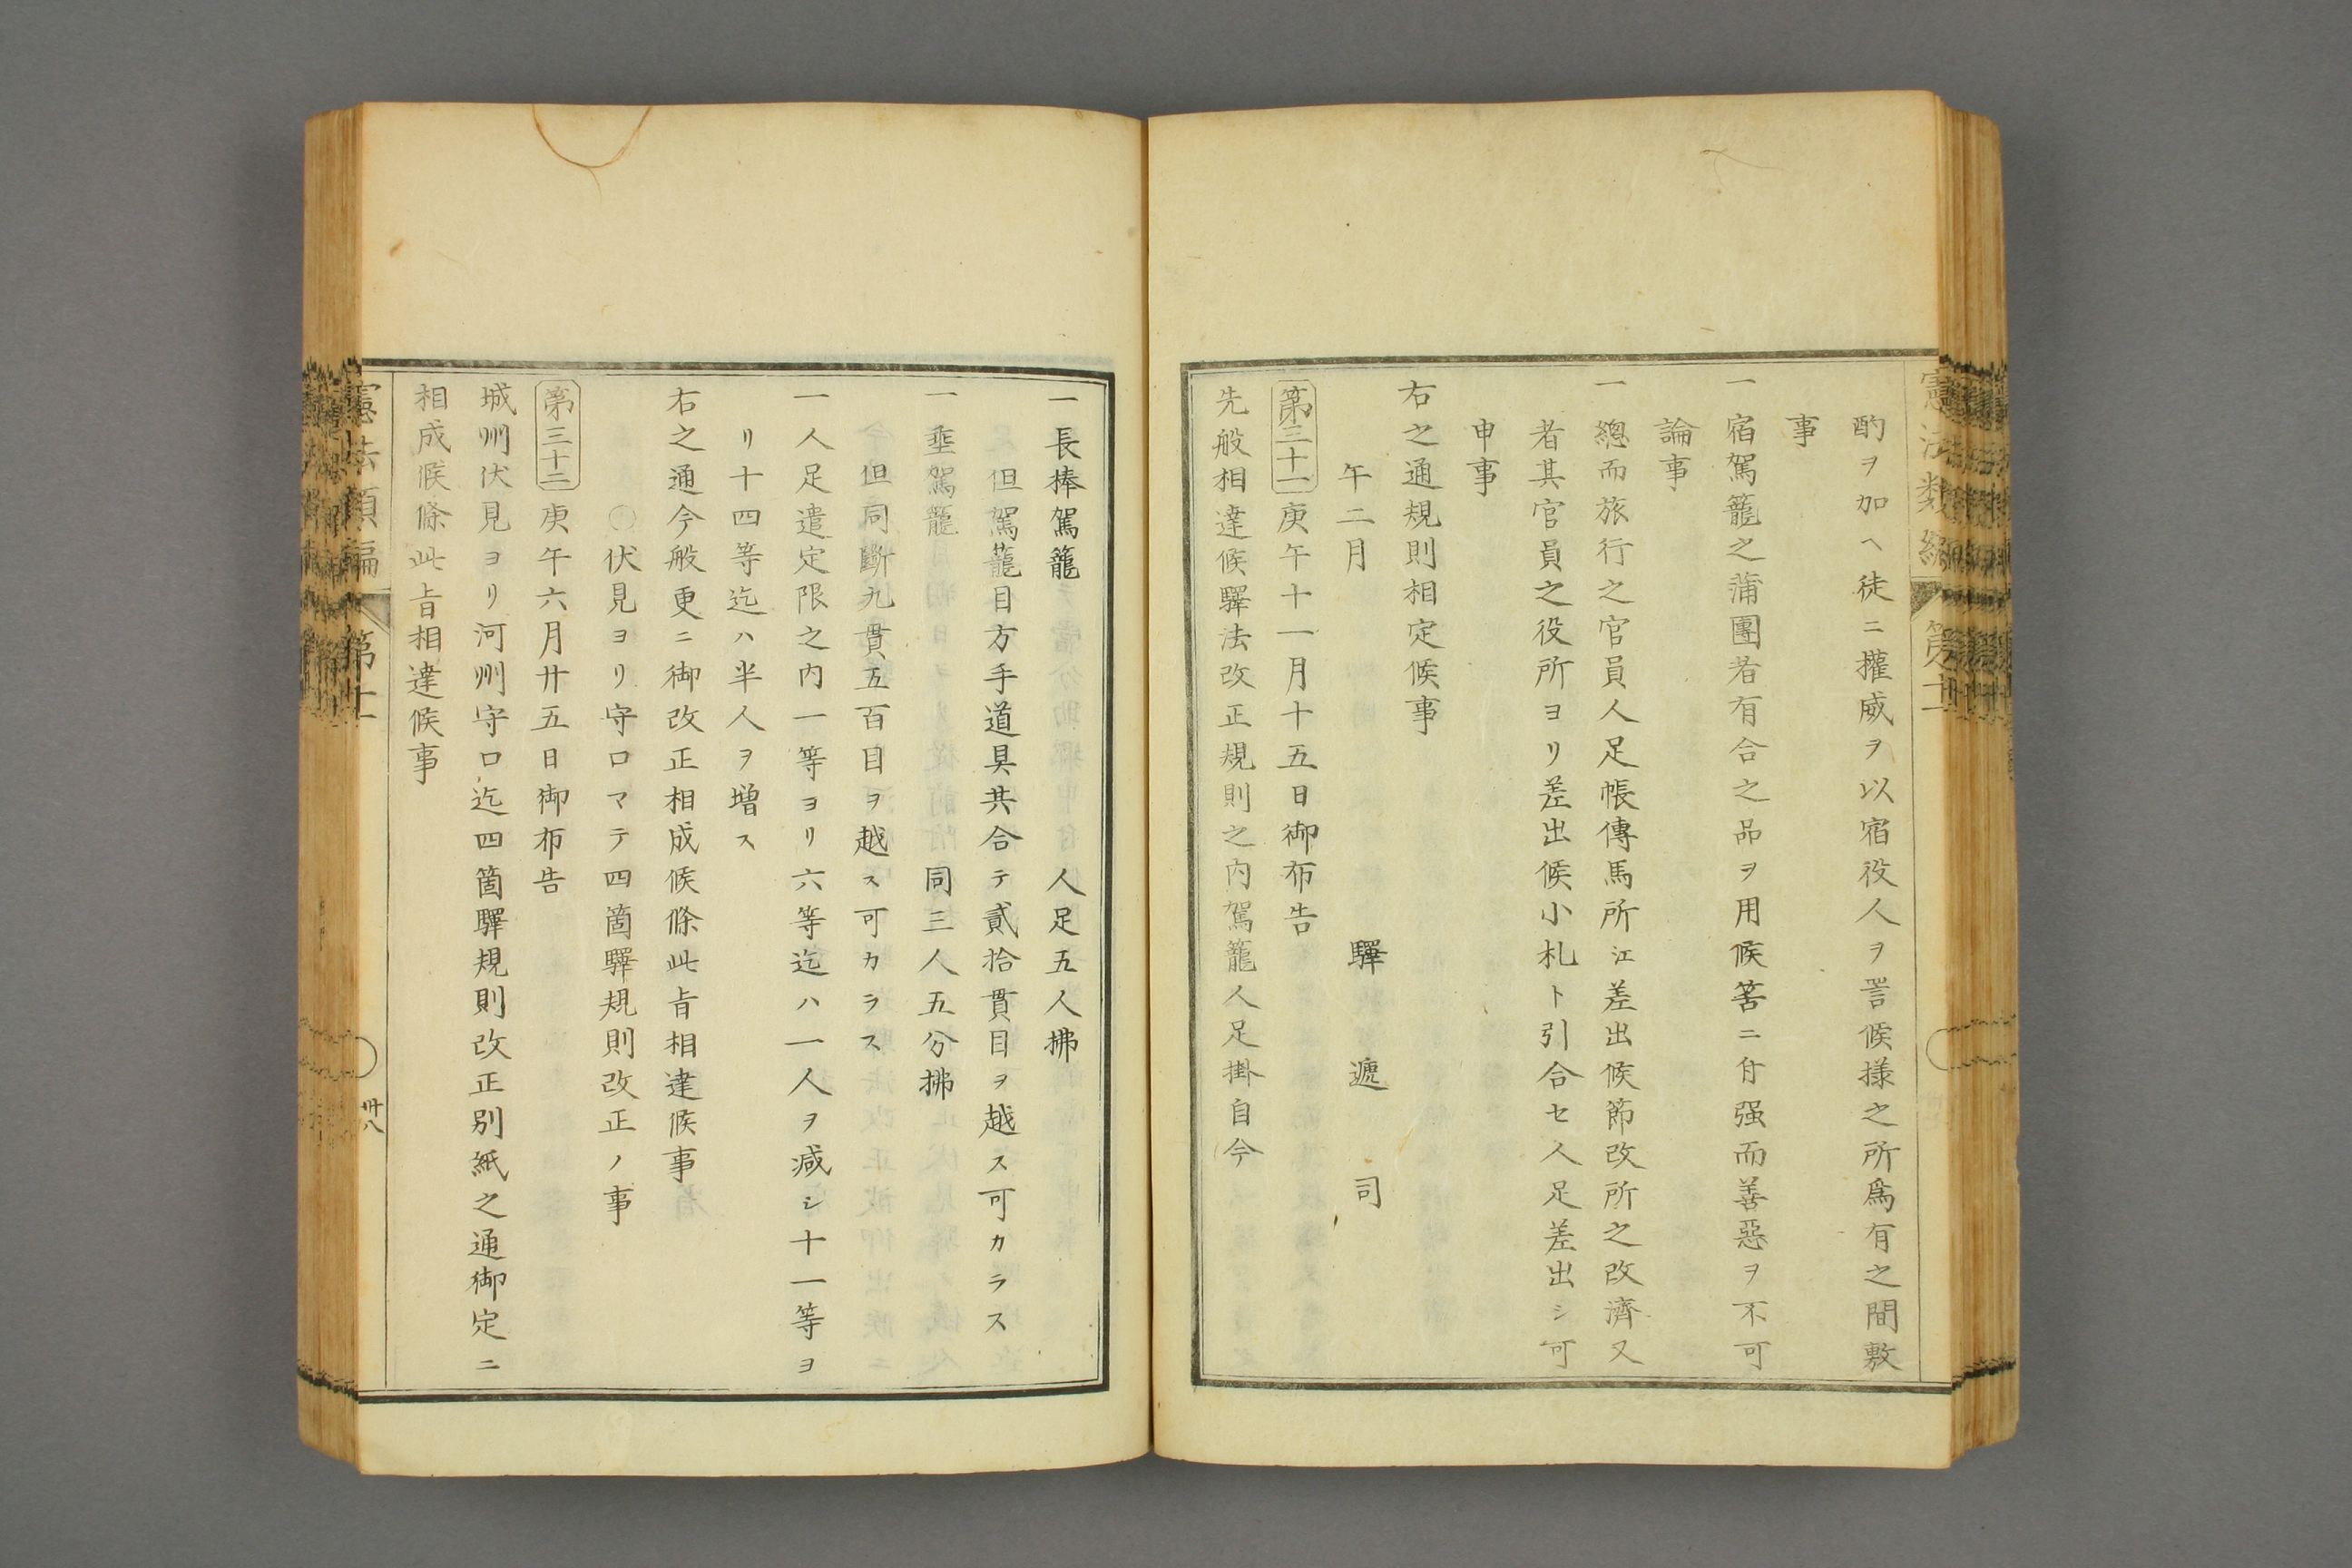 憲法類編
第十
酌ヲ加ヘ徒ニ權威ヲ以宿役人ヲ詈候様之所爲有之間敷
事
一宿駕籠之蒲團者有合之品ヲ用候筈ニ付强而善惡ヲ不可
論事
一總而旅行之官員人足帳傳馬所江差出候節改所之改濟又
者其官員之役所ヨリ差出候小札ト引合セ人足差出シ可
申事
右之通規則相定候事
午二月 驛遞司
第三十一庚午十一月十五日御布告
先般相達候驛法改正規則之内駕籠人足掛自今
一長棒駕籠 人足五人拂
但駕籠目方手道具共合テ貳拾貫目ヲ越ス可カラス
一垂駕籠 同三人五分拂
但同斷九貫五百目ヲ越ス可カラス
一人足遣定限之内一等ヨリ六等迄ハ一人ヲ减シ十一等ヨ
リ十四等迄ハ半人ヲ增ス
右之通今般更ニ御改正相成候條此旨相達候事
〇伏見ヨリ守口マテ四箇驛規則改正ノ事
第三十二庚午六月廿五日御布告
城州伏見ヨリ河州守口迄四箇驛規則改正別紙之通御定ニ
相成候條此旨相達候事
憲法類編
第十
卅八